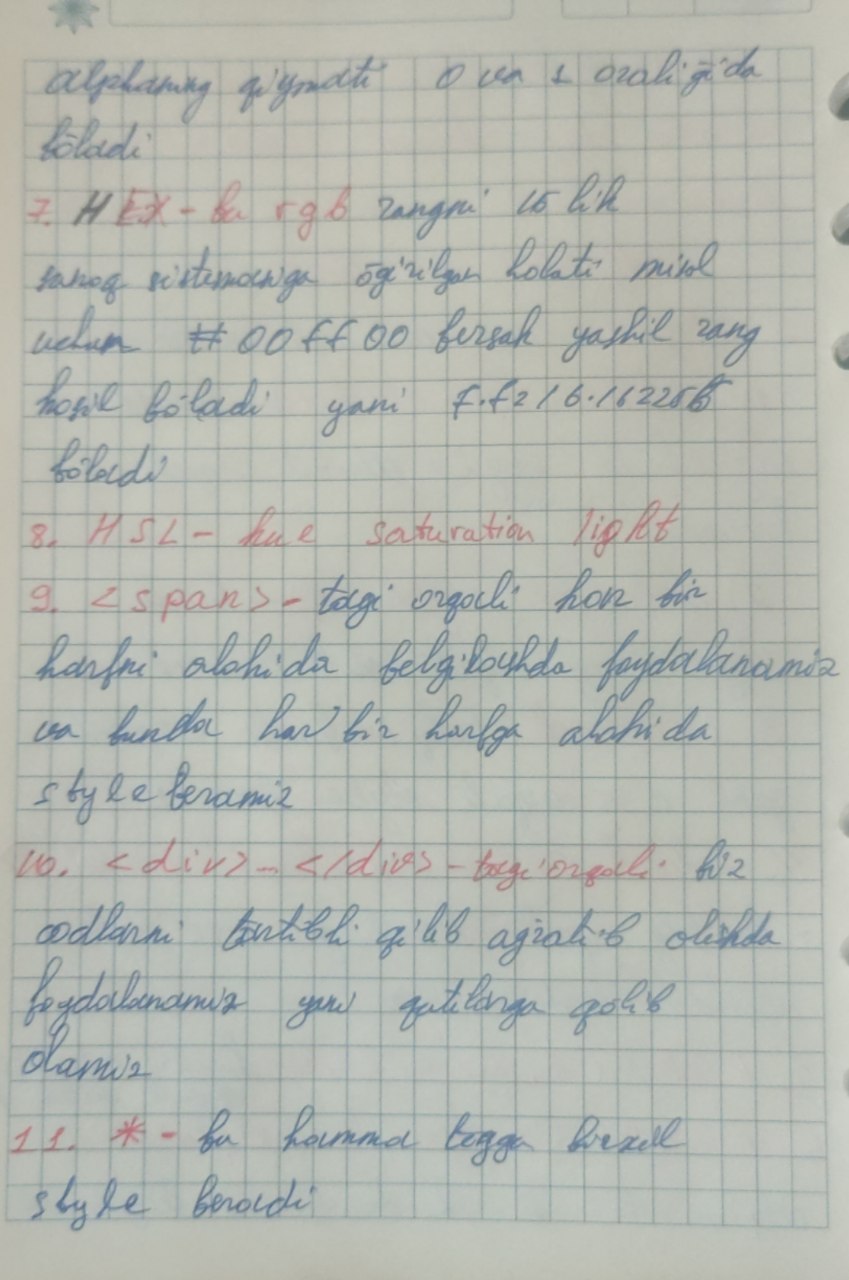 alphaning qiymati 0 va 1 oralig'ida
bōladi
7. HEX - bu rgb rangni 16 lik
sanoq sistemasiga ōgirilgan holati misol
uchun #00ff00 bersak yashil rang
hosil bōladi yani F.F216.16
bōladi
8. HSL - hue saturation light
9. <span> - tagi orqali har bir
harfni alohida belgilashda foydalanamiz
va bunda har bir harfga alohida
style beramiz
10. <div> - </div> - tagi orqali biz
codlarni tartibli qilib ajratib olishda
foydalanamiz yani qutilarga qōlib
olamiz
11. * - bu hamma tagga birxil
style beradi